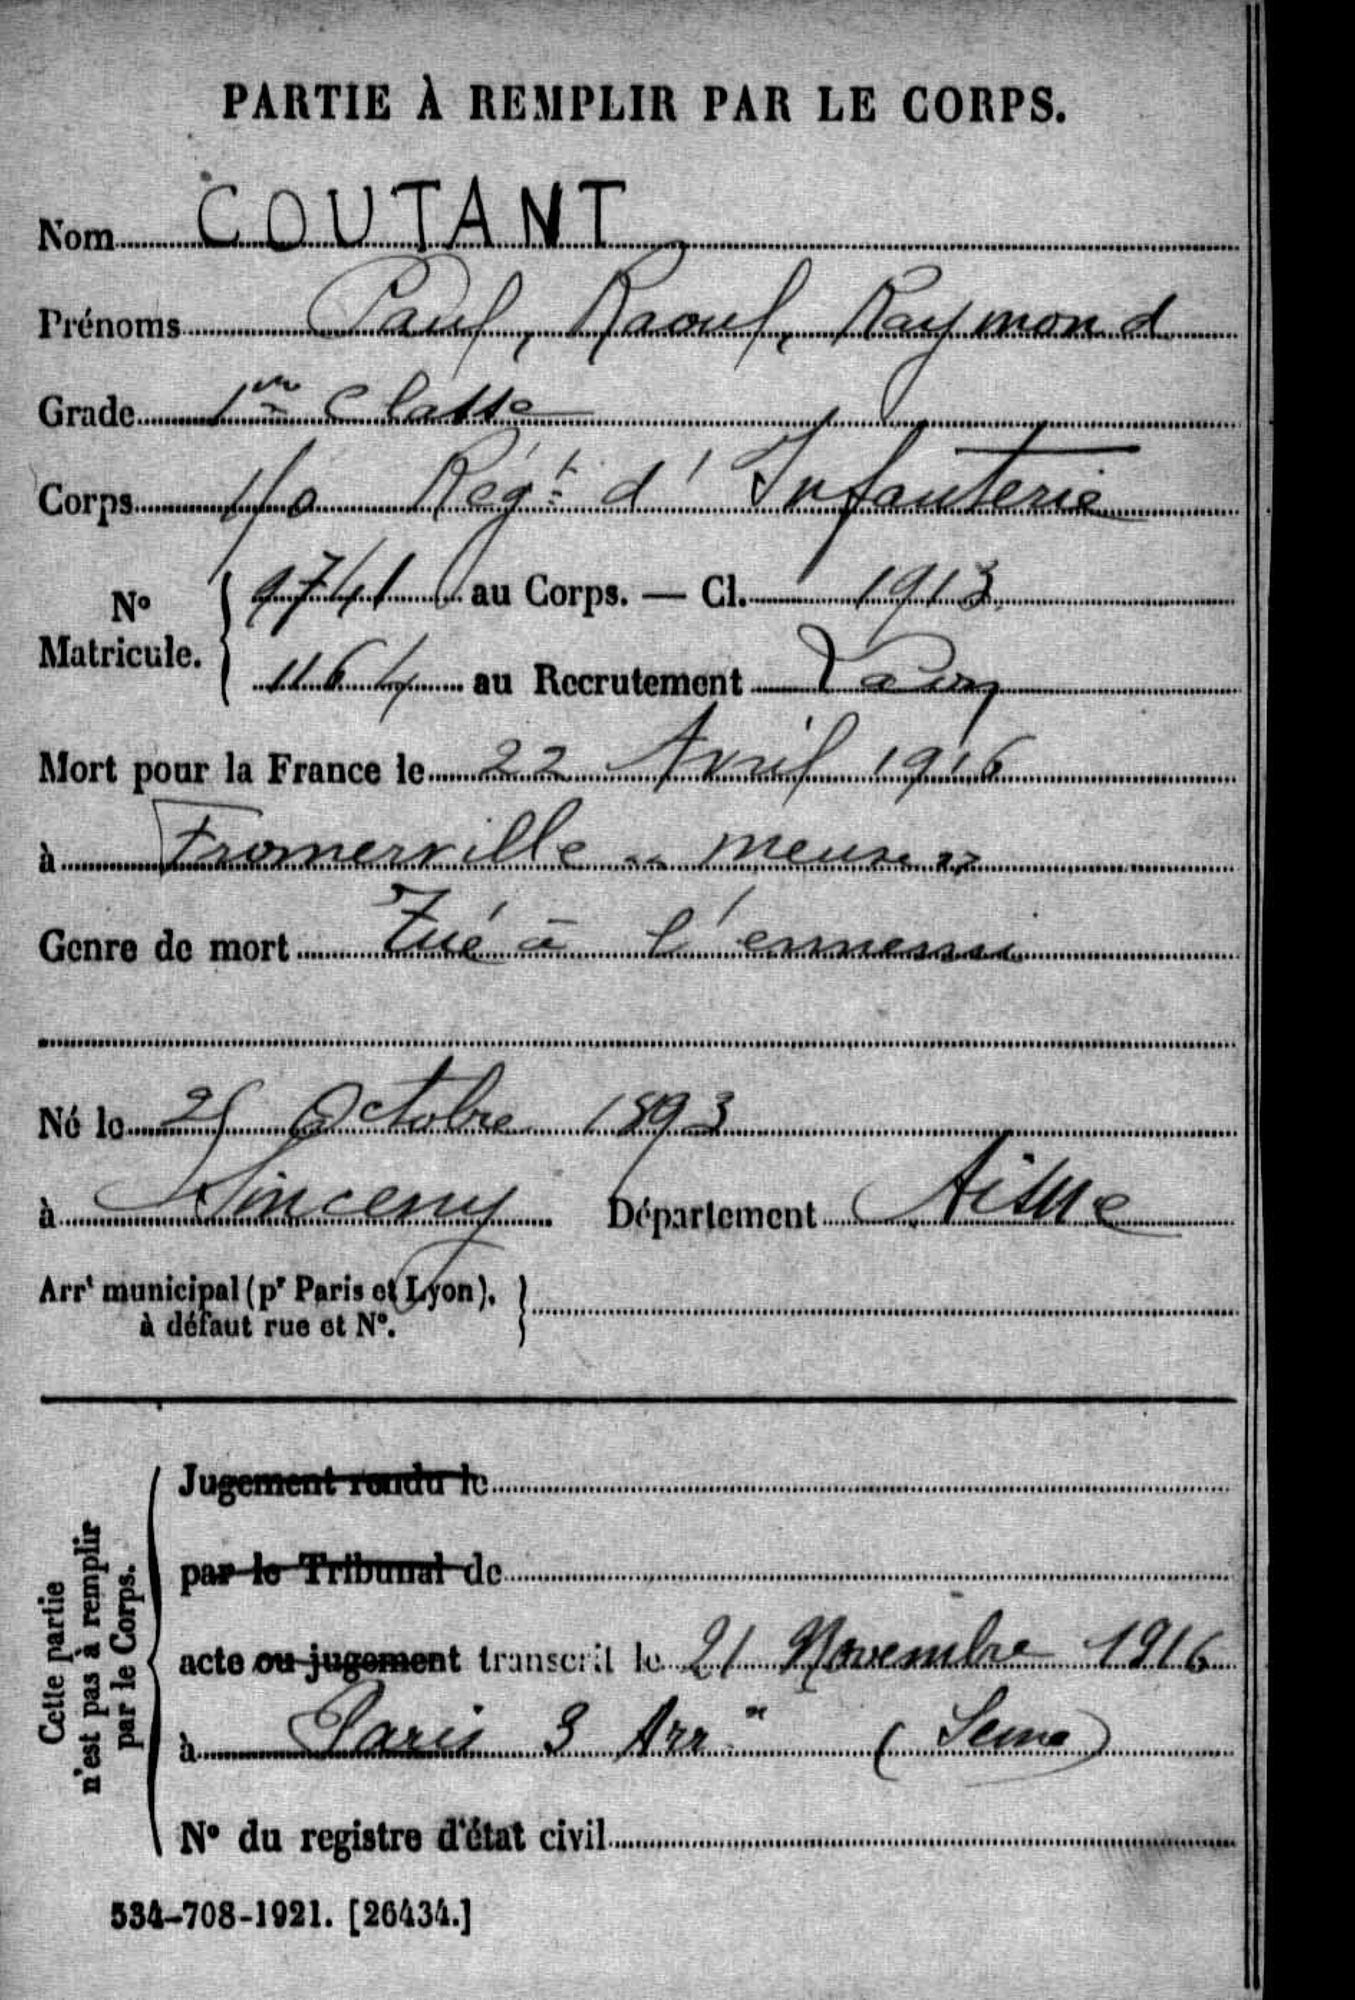 PARTIE À REMPLIR PAR LE CORPS.
Nom COUTANT
Prénoms Paul, Raoul, Raymond
Grade 1re Classe
Corps 110 Régt d'Infanterie
No Matricule. 9741 au Corps. — Cl. 1913
1164 au Recrutement Laon
Mort pour la France le 22 Avril 1916
à Fromerville "meuse"
Genre de mort Tué à l'ennemi
Né le Octobre 1893
à Sinceny Département Aisne
Arrt municipal (pr Paris et Lyon),
à défaut rue et No.
Cette partie
n'est pas à remplir
par le Corps.
Jugement rendu le
par le Tribunal de
acte ou jugement transcrit le 21 Novembre 1916
à Paris 3 Arrt (Seine)
No du registre d'état civil
534-708-1921. [26434.]